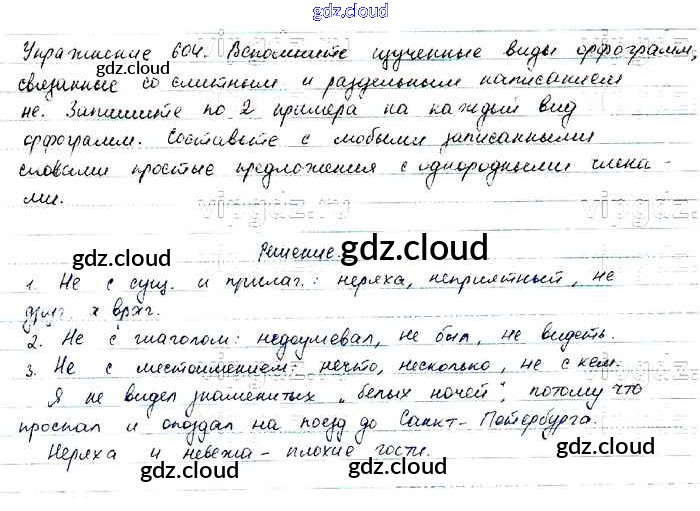 gdz.cloud
Упражнение 604. Вспомните изученные виды орфограмм,
связанные со слитным и раздельным написанием
gdz.cloud gdz.cloud
не. Запишите по 2 примера на каждый вид
орфограмм. Составьте с любыми записанными
словами простые предложения с однородными члена-
gdz.cloud gdz.cloud
ми.
vipgdz.ru vipgdz.ru
Решение.
gdz.cloud gdz.cloud
1. Не с сущ. и прилаг.: неряха, неприятный, не
друг, а враг.
2. Не с глаголом: недоумевал, не был, не видеть.
3. Не с местоимением: нечто, несколько, не с кем.
Я не видел знаменитых „белых ночей", потому что
проспал и опоздал на поезд до Санкт-Петербурга.
gdz.cloud gdz.cloud
Неряха и невежа - плохие гости.
gdz.cloud gdz.cloud